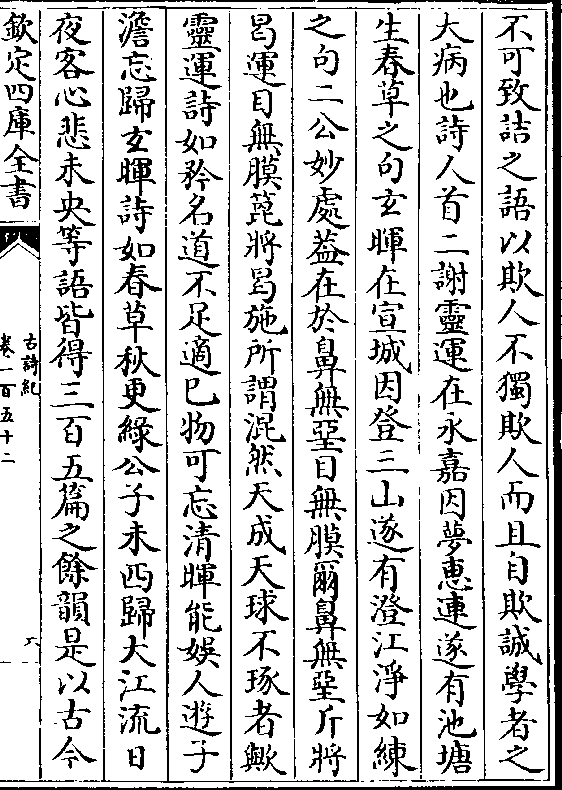 不可致詰之語以欺人不獨欺人而且自欺誠學者之
大病也詩人首二謝靈運在永嘉因夢惠連遂有池塘
生春草之句玄暉在宣城因登三山遂有澄江淨如練
之句二公妙處葢在於鼻無堊目無膜爾鼻無堊斤將
曷運目無膜箆將曷施所謂混然天成天球不琢者歟
靈運詩如矜名道不足適己物可忘清暉能娛人遊子
澹忘歸玄暉詩如春草秋更綠公子未西歸大江流日
夜客心悲未央等語皆得三百五篇之餘韻是以古今
欽定四庫全書
古詩紀
卷一百五十二
六